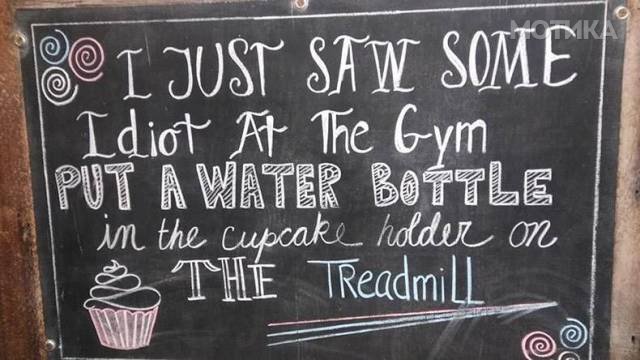 МОТИКА
I JUST SAW SOME
Idiot At The Gym
PUT A WATER BOTTLE
in the cupcake holder on
THE TREADMILL